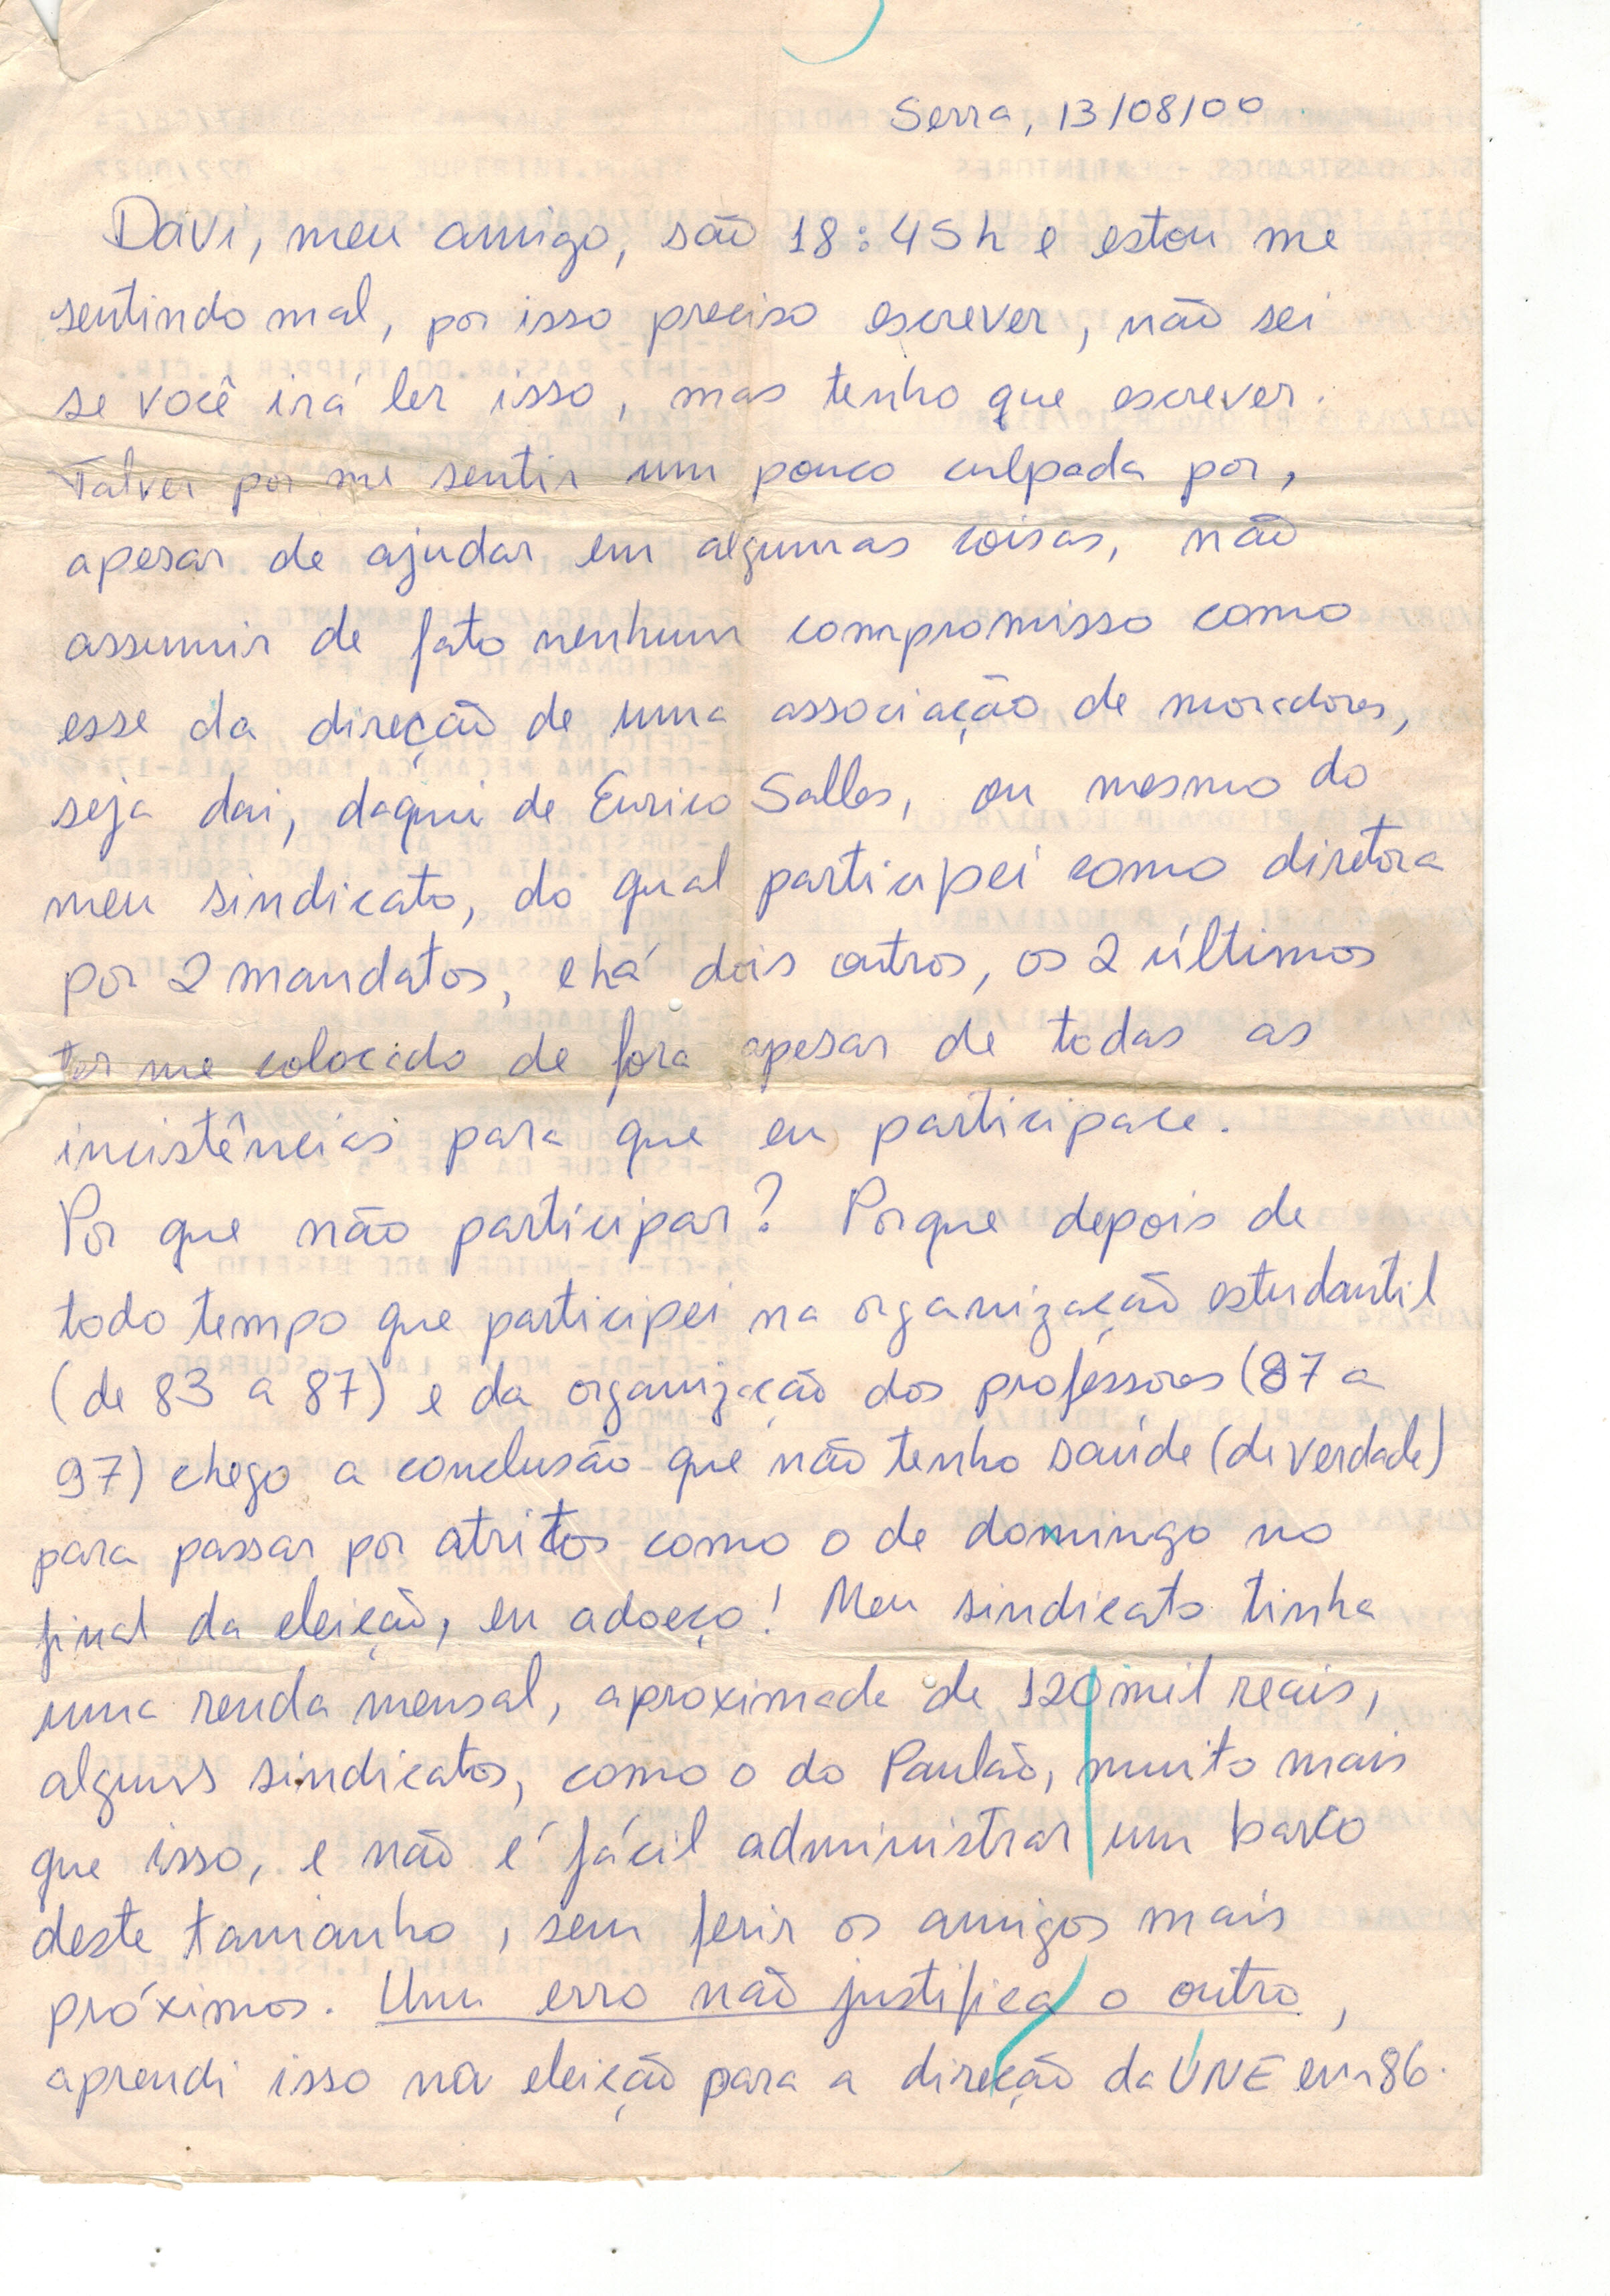 Serra, 13/08/00
Davi, meu amigo, são 18:45h e estou me
sentindo mal, por isso preciso escrever, não sei
se você irá ler isso, mas tenho que escrever.
Talvez por me sentir um pouco culpada por,
apesar de ajudar em algumas coisas, não
assumir de fato nenhum compromisso como
esse da direção de uma associação de moradores,
seja dai, daqui de Eurico Salles, ou mesmo do
meu sindicato, do qual participei como diretora
por 2 mandatos, e há dois outros, os 2 últimos
ter me colocado de fora apesar de todas as
incistências para que eu participace.
Por que não participar? Porque depois de
todo tempo que participei na organização estudantil
(de 83 a 87) e da organização dos professores (87 a
97) chego a conclusão que não tenho saúde (de verdade)
para passar por atritos como o de domingo no
final da eleição, eu adoeço! Meu sindicato tinha
uma renda mensal, aproximada de 120 mil reais,
alguns sindicatos, como o do Paulão, muito mais
que isso, e não é fácil administrar um barco
deste tamanho, sem ferir os amigos mais
próximos. Um erro não justifica o outro,
aprendi isso na eleição para a direção da UNE em 86.